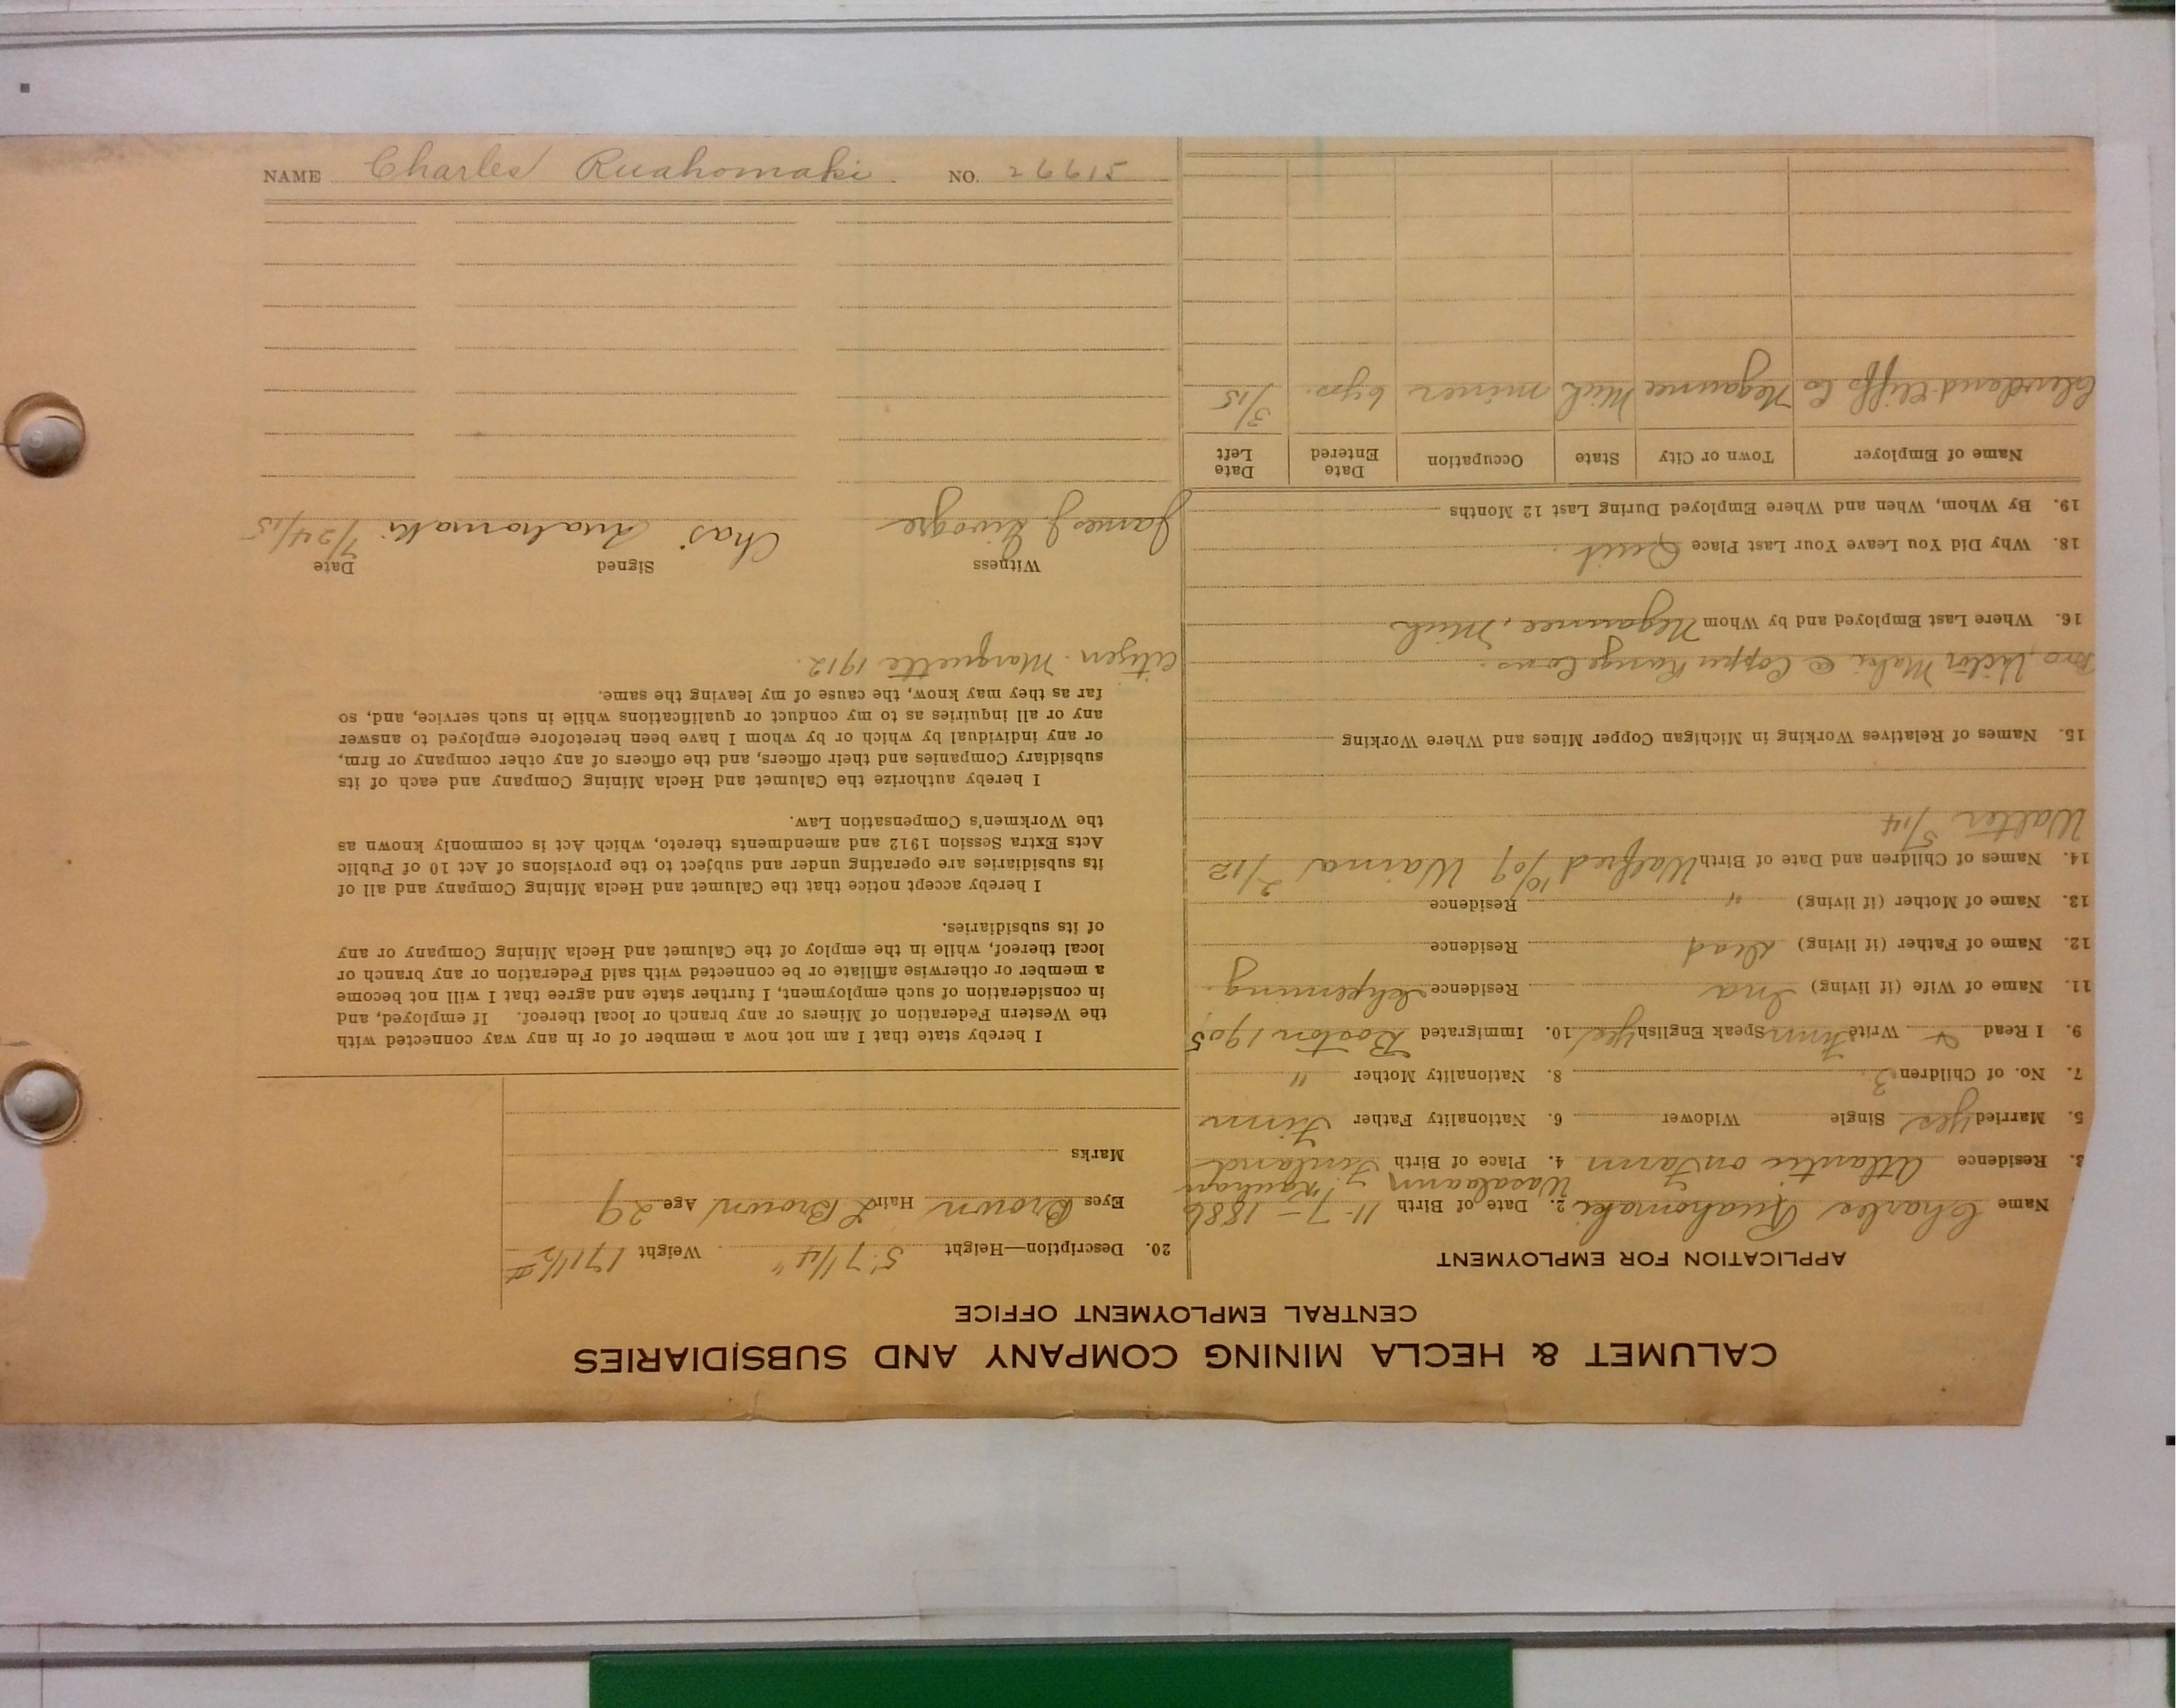 CALUMET & HECLA MINING COMPANY AND SUBSIDIARIES
CENTRAL EMPLOYMENT OFFICE
APPLICATION FOR EMPLOYMENT
Name Charles Ruahomaki 2. Date of Birth 11-7-1886
3. Residence Atlantic on Farm 4. Place of Birth Finland
5. Married yes Single Widower 6. Nationality Father Finn
7. No. of Children 3 8. Nationality Mother "
9. I Read & Write Finn Speak English yes 10. Immigrated Boston 1905
11. Name of Wife (if living) Ina Residence Ishpeming
12. Name of Father (if living) dead Residence
13. Name of Mother (if living) " Residence
14. Names of Children and Date of Birth Walfred 10/09 Waino 2/12
Walter 5/14
15. Names of Relatives Working in Michigan Copper Mines and Where Working
Bro, Victor Maki @ Copper Range Cons.
16. Where Last Employed and by Whom Negaunee, Mich
18. Why Did You Leave Your Last Place Quit.
19. By Whom, When and Where Employed During Last 12 Months
Name of Employer Town or City State Occupation Date Entered Date Left
Cleveland Cliffs Co Negaunee Mich miner 6 yrs. 3/15
20. Description—Height 5' 7 1/4" Weight 171 1/2 #
Eyes Brown Hair L Brown Age 29
Marks
I hereby state that I am not now a member of or in any way connected with
the Western Federation of Miners or any branch or local thereof. If employed, and
in consideration of such employment, I further state and agree that I will not become
a member or otherwise affiliate or be connected with said Federation or any branch or
local thereof, while in the employ of the Calumet and Hecla Mining Company or any
of its subsidiaries.
I hereby accept notice that the Calumet and Hecla Mining Company and all of
its subsidiaries are operating under and subject to the provisions of Act 10 of Public
Acts Extra Session 1912 and amendments thereto, which Act is commonly known as
the Workmen's Compensation Law.
I hereby authorize the Calumet and Hecla Mining Company and each of its
subsidiary Companies and their officers, and the officers of any other company or firm,
or any individual by which or by whom I have been heretofore employed to answer
any or all inquiries as to my conduct or qualifications while in such service, and, so
far as they may know, the cause of my leaving the same.
Citizen - Marquette 1912.
Witness Signed Date
James J. Chas. Ruahomaki 7/24/15
NAME Charles Ruahomaki NO. 26615